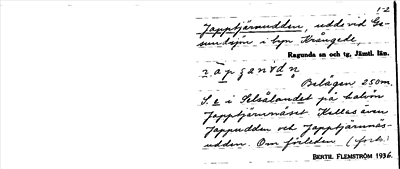 1-2
Japptjärnudden, udde vid Ge-
sundsjön i byn Krångede,
Ragunda sn och tg, Jämtl. län.
Belägen 250 m.
S. e i Selsålandet på halvön
Japptjärnnäset. Kallas även
Jappudden och Japptjärnnäs-
udden. Om förleden (forts.
BERTIL FLEMSTRÖM 1936.